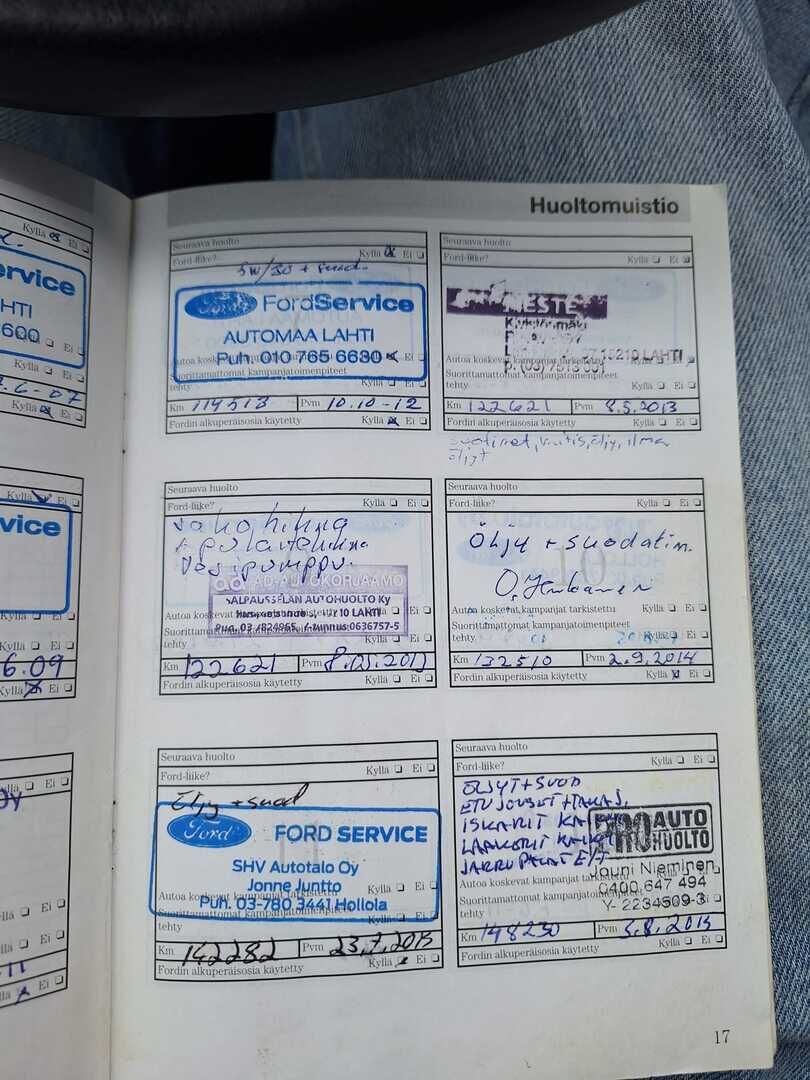 Huoltomuistio
Kyllä Ei
ervice
HTI
600
Kyllä Ei
6-07
Kyllä Ei
Kyllä Ei
vice
Kyllä Ei
6.09
Kyllä Ei
Seuraava huolto
Ford-liike? Kyllä Ei
5W/30 + suod.
Ford FordService
AUTOMAA LAHTI
Puh. 010 765 6630
Autoa koskevat kampanjat tarkistettu Kyllä Ei
Suorittamattomat kampanjatoimenpiteet
tehty Kyllä Ei
Km 114513 Pvm 10.10-12
Fordin alkuperäisosia käytetty Kyllä Ei
Seuraava huolto
Ford-liike? Kyllä Ei
NESTE
15210 LAHTI
Autoa koskevat kampanjat tarkistettu
Suorittamattomat kampanjatoimenpiteet
tehty Kyllä Ei
Km 122621 Pvm 8.5.2013
Fordin alkuperäisosia käytetty Kyllä Ei
Seuraava huolto
Ford-liike? Kyllä Ei
jakohihna
vesipumppu.
AD-AUTOKORJAAMO
SALPAUSSELÄN AUTOHUOLTO Ky
10 LAHTI
Y-tunnus 0636757-5
Autoa koskevat kampanjat tarkistettu Kyllä Ei
Suorittamattomat kampanjatoimenpiteet
tehty Kyllä Ei
Km 122621 Pvm 8.05.2013
Fordin alkuperäisosia käytetty Kyllä Ei
Seuraava huolto
Ford-liike? Kyllä Ei
Öljy + suodatin.
Autoa koskevat kampanjat tarkistettu Kyllä Ei
Suorittamattomat kampanjatoimenpiteet
tehty Kyllä Ei
Km 132510 Pvm 2.9.2014
Fordin alkuperäisosia käytetty Kyllä Ei
Seuraava huolto
Ford-liike? Kyllä Ei
Öljy + suod
Ford FORD SERVICE
SHV Autotalo Oy
Jonne Juntto
Puh. 03-780 3441 Hollola
Autoa koskevat kampanjat tarkistettu Kyllä Ei
Suorittamattomat kampanjatoimenpiteet
tehty Kyllä Ei
Km 142282 Pvm 23.7.2015
Fordin alkuperäisosia käytetty Kyllä Ei
Seuraava huolto
Ford-liike? Kyllä Ei
ÖLJYT+SUOD
ETU JOUSET + TAKAS.
ISKARIT
JARRUPALAT
PRO AUTO
HUOLTO
Jouni Nieminen
0400 647 494
Y- 2234509-3
Autoa koskevat kampanjat tarkistettu
Suorittamattomat kampanjatoimenpiteet
tehty Kyllä Ei
Km 148230 Pvm 3.8.2015
Fordin alkuperäisosia käytetty Kyllä Ei
17